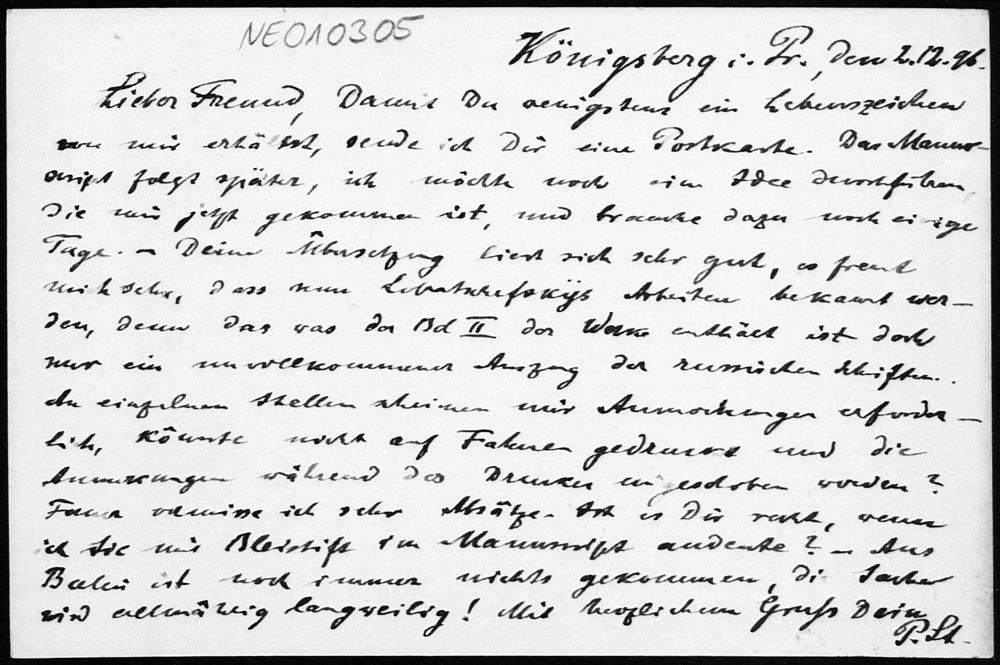 NEO10305
Königsberg i. Pr., den 2.12.96.
Lieber Freund, Damit Du wenigstens ein Lebenszeichen
von mir erhältst, sende ich Dir eine Postkarte. Das Manus-
cript folgt später, ich möchte noch eine Idee durchführen,
die mir jetzt gekommen ist, und brauche dazu noch einige
Tage. – Deine Übersetzung liest sich sehr gut, es freut
mich sehr, dass nun Lobatschefskijs Arbeiten bekannt wer-
den, denn das was der Bd II der Werke enthält ist doch
nur ein unvollkommener Auszug der russischen Schriften.
An einzelnen Stellen scheinen mir Anmerkungen erforder-
lich, könnte nicht auf Fahnen gedruckt und die
Anmerkungen während des Druckes eingeschoben werden?
Ferner vermisse ich sehr Absätze. Ist es Dir recht, wenn
ich sie mit Bleistift im Manuscript andeute? – Aus
Berlin ist noch immer nichts gekommen, die Sache
wird allmählig langweilig! Mit herzlichem Gruss Dein
P. St.